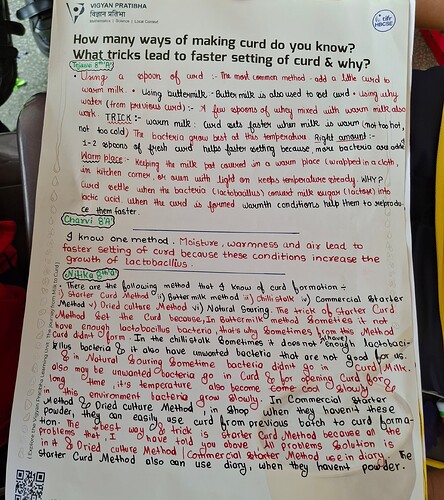 VIGYAN PRATIBHA
विज्ञान प्रतिभा
Mathematics | Science | Local Context
HBCSE
How many ways of making curd do you know?
What tricks lead to faster setting of curd & why?
Tejasvi 8th 'A'
• Using a spoon of curd :- The most common method - add a little curd to
warm milk. • Using buttermilk - Butter milk is also used to set curd • using whey
water (from previous curd) :- A few spoons of whey mixed with warm milk also
work TRICK :- warm milk : Curd sets faster when milk is warm (not too hot,
not too cold) The bacteria grow best at this temperature Right amount :-
1-2 spoons of fresh curd helps faster setting because more bacteria are added
Warm place :- Keeping the milk pot covered in a warm place (wrapped in a cloth,
in kitchen corner, or oven with light on keeps temperature steady. WHY?
Curd settle when the bacteria (lactobacillus) convert milk sugar (lactose) into
lactic acid. when the curd is formed warmth conditions help them to reprodu-
ce them faster.
Charvi 8'A'
I know one method. Moisture, warmness and air lead to
faster setting of curd because these conditions increase the
growth of lactobacillius.
Nitika 8th'A'
• There are the following method that I know of curd formation ÷
i) Starter Curd Method ii) Buttermilk method iii) Chilli stalk iv) Commercial Starter
Method v) Dried culture Method vi) Natural Souring. The trick of Starter Curd
Method Set the Curd because, In Buttermilk method Sometimes it not
have enough lactobacillus bacteria, that's why Sometimes from this Method
Curd didn't form. In the chillistalk Sometimes it does not (have) enough lactobaci-
llus bacteria & it also have unwanted bacteria that are not good for us.
& in Natural Souring Sometime bacteria didn't go in Curd Milk.
also may be unwanted bacteria go in Curd & for opening Curd for
time, it's temperature also become come down slowly &
this environment bacteria grow slowly. In Commercial Starter
Method & Dried culture Method, in Shop when they haven't these
powder, they can easily use curd from previous batch to curd forma-
tion. The best way & trick is Starter Curd Method because all the
problems that, I have told you above, All problems Solution is
in it & Dried culture Method | Commercial Starter Method use in diary. The
Starter Curd Method also can use diary, when they haven't powder.